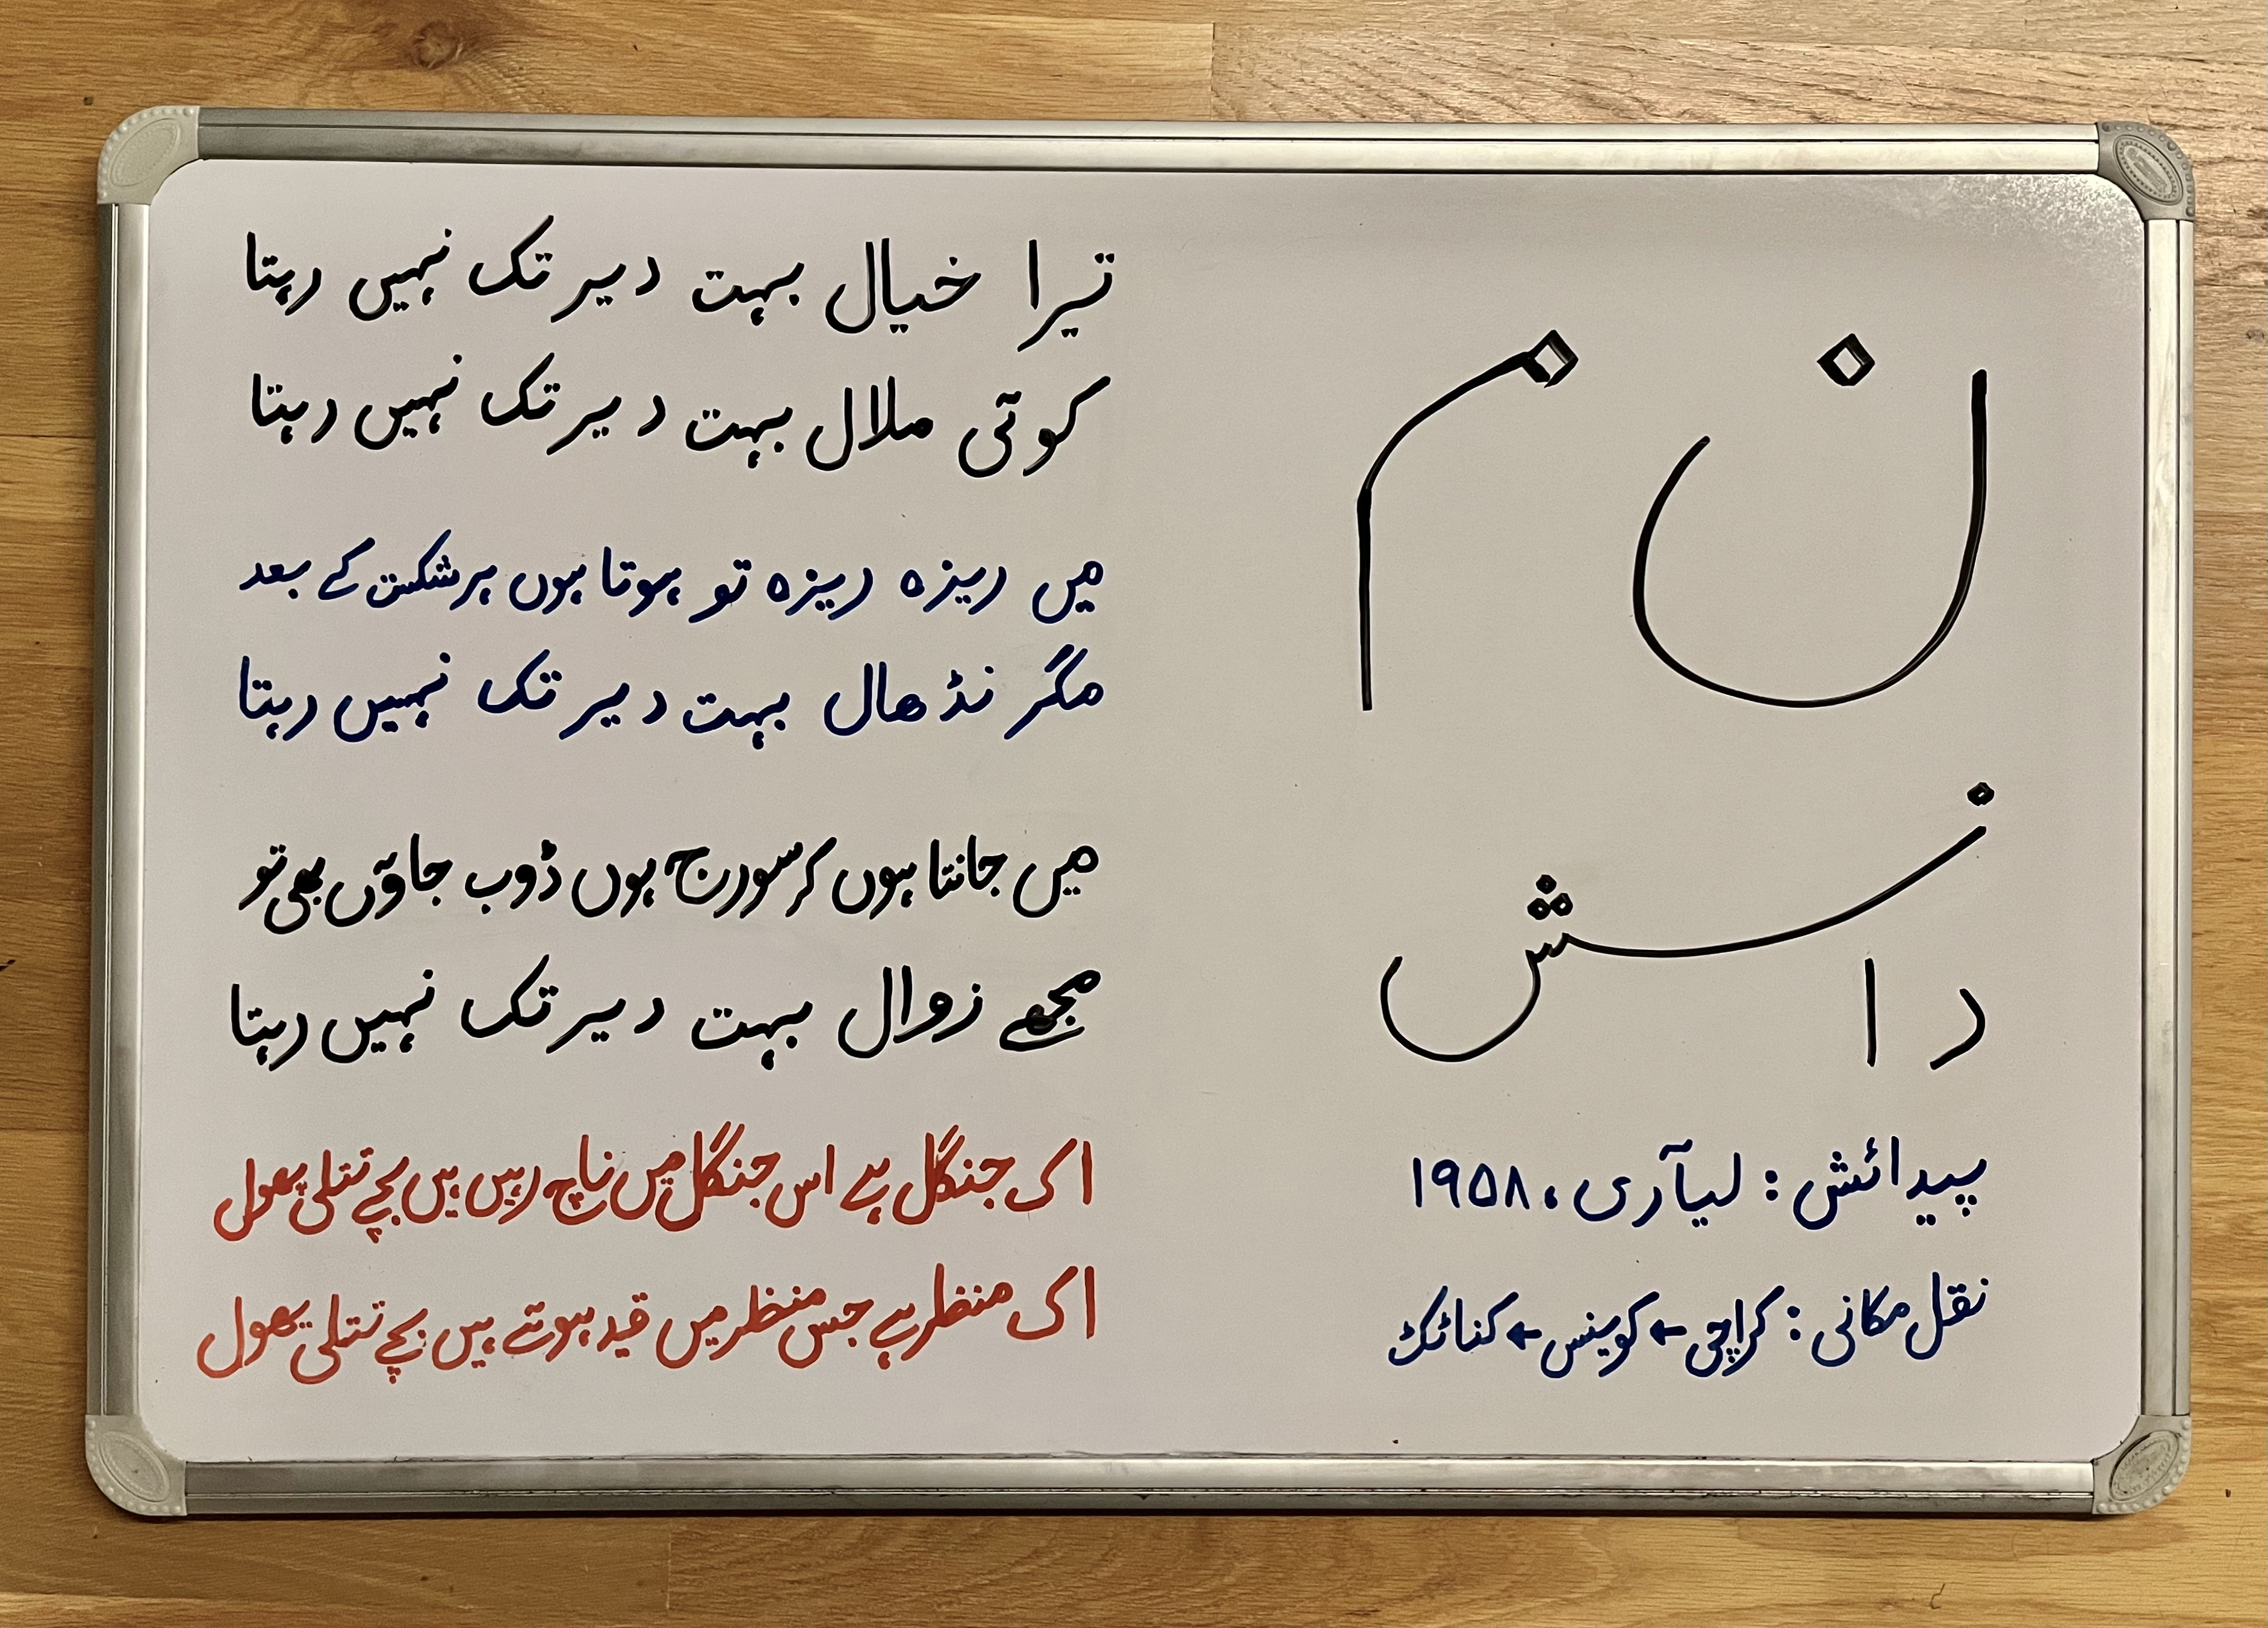 ن م
دانش
پیدائش : لیآری، ۱۹۵۸
نقل مکانی : کراچی ← کوینس ← کناٹکٹ
تیرا خیال بہت دیر تک نہیں رہتا
کوئی ملال بہت دیر تک نہیں رہتا
میں ریزہ ریزہ تو ہوتا ہوں ہر شکست کے بعد
مگر نڈھال بہت دیر تک نہیں رہتا
میں جانتا ہوں کہ سورج ہوں ڈوب جاؤں بھی تو
مجھے زوال بہت دیر تک نہیں رہتا
اک جنگل ہے اس جنگل میں ناچ رہیں ہیں بچے تتلی پھول
اک منظر ہے جس منظر میں قید ہوتے ہیں بچے تتلی پھول